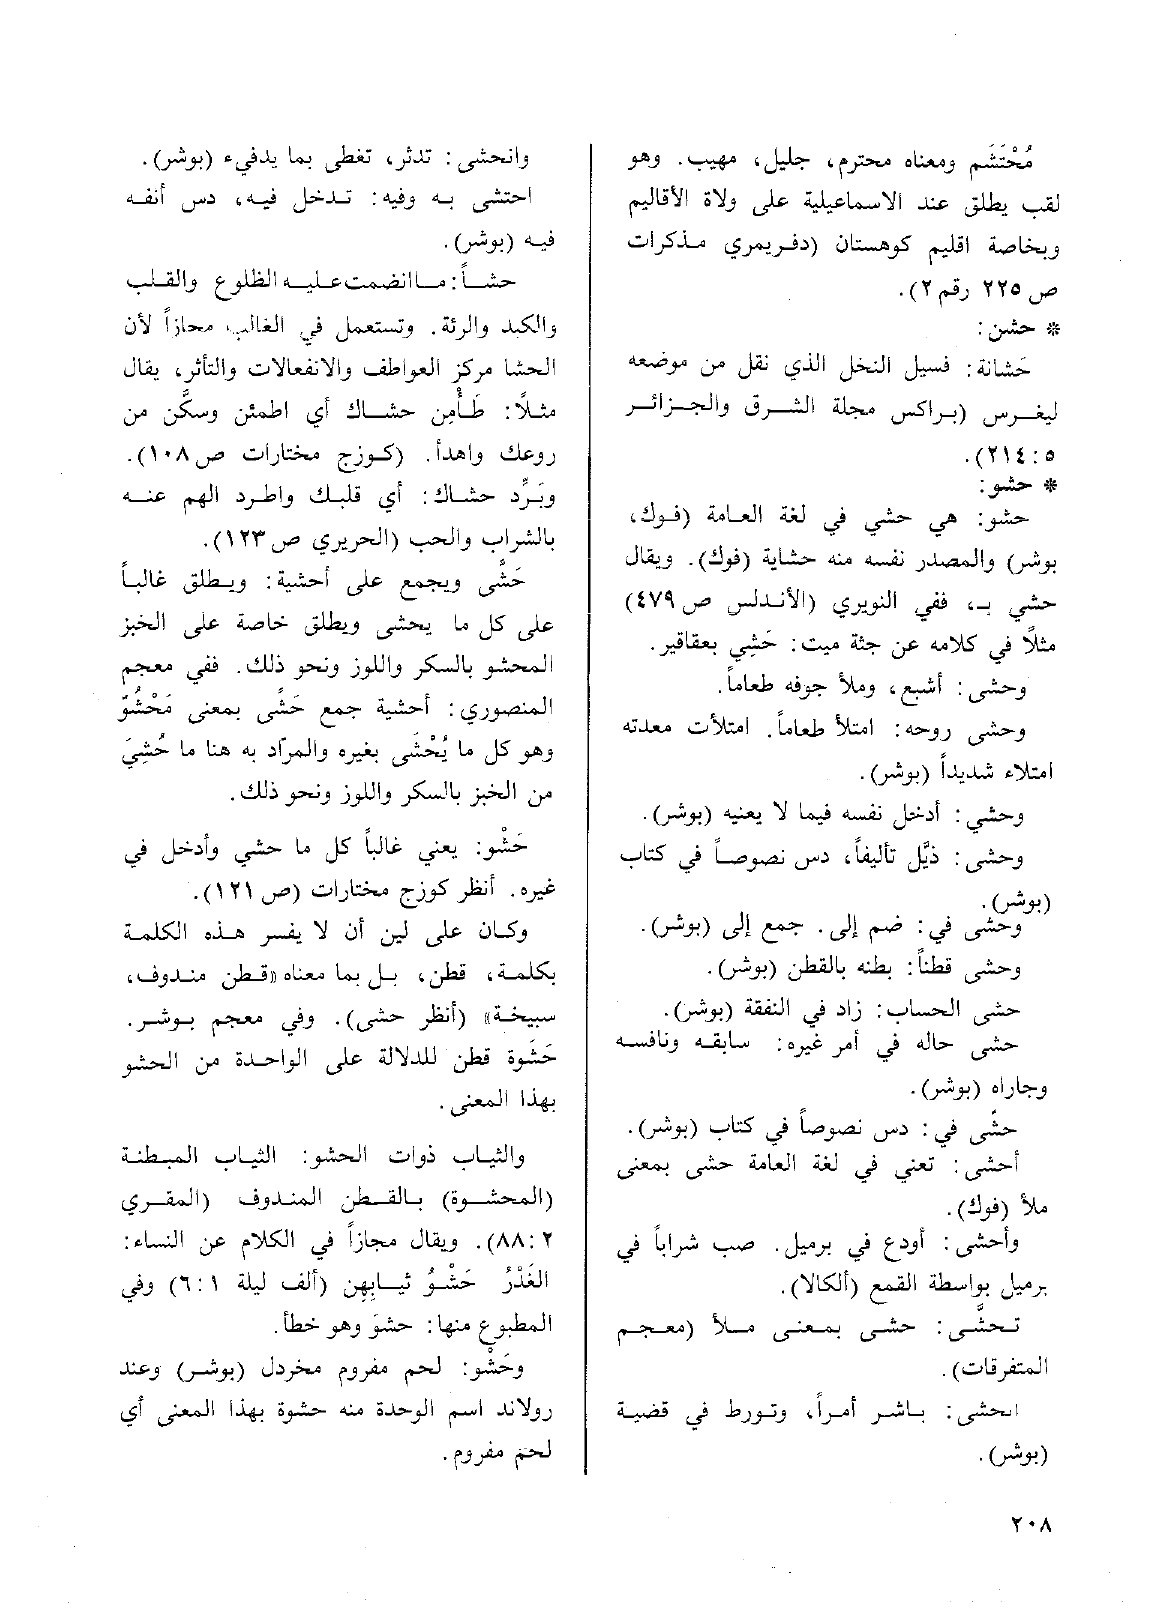 مُحْتَشَم ومعناه محترم، جليل، مهيب. وهو
لقب يطلق عند الاسماعيلية على ولاة الأقاليم
وبخاصة اقليم كوهستان (دفريمري مذكرات
ص ٢٢٥ رقم ٢).
* حشن:
حَشانة: فسيل النخل الذي نقل من موضعه
ليغرس (براكس مجلة الشرق والجزائر
٥ : ٢١٤).
* حشو:
حشو: هي حشي في لغة العامة (فوك،
بوشر) والمصدر نفسه منه حشاية (فوك). ويقال
حشي بـ، ففي النويري (الأندلس ص ٤٧٩)
مثلاً في كلامه عن جثة ميت: حَشِي بعقاقير.
وحشى: أشبع، وملأ جوفه طعاماً.
وحشى روحه: امتلأ طعاماً. امتلأت معدته
امتلاء شديداً (بوشر).
وحشي: أدخل نفسه فيما لا يعنيه (بوشر).
وحشى: ذيَّل تأليفاً، دس نصوصاً في كتاب
(بوشر).
وحشى في: ضم إلى. جمع إلى (بوشر).
وحشى قطناً: بطنه بالقطن (بوشر).
حشى الحساب: زاد في النفقة (بوشر).
حشى حاله في أمر غيره: سابقه ونافسه
وجاراه (بوشر).
حشّى في: دس نصوصاً في كتاب (بوشر).
أحشى: تعني في لغة العامة حشى بمعنى
ملأ (فوك).
وأحشى: أودع في برميل. صب شراباً في
برميل بواسطة القمع (ألكالا).
تحشَّى: حشى بمعنى ملأ (معجم
المتفرقات).
انحشى: باشر أمراً، وتورط في قضية
(بوشر).
وانحشى: تدثر، تغطى بما يدفيء (بوشر).
احتشى به وفيه: تدخل فيه، دس أنفه
فيه (بوشر).
حشاً: ما انضمت عليه الظلوع والقلب
والكبد والرئة. وتستعمل في الغالب، مجازاً لأن
الحشا مركز العواطف والانفعالات والتأثر، يقال
مثلاً: طَأْمِن حشاك أي اطمئن وسكَّن من
روعك واهدأ. (كوزج مختارات ص ١٠٨).
وبَرِّد حشاك: أي قلبك واطرد الهم عنه
بالشراب والحب (الحريري ص ١٢٣).
حَشًّى ويجمع على أحشية: ويطلق غالباً
على كل ما يحشى ويطلق خاصة على الخبز
المحشو بالسكر واللوز ونحو ذلك. ففي معجم
المنصوري: أحشية جمع حَشًّى بمعنى مَحْشُوّ
وهو كل ما يُحْشَى بغيره والمرّاد به هنا ما حُشِيَ
من الخبز بالسكر واللوز ونحو ذلك.
حَشْو: يعني غالباً كل ما حشي وأدخل في
غيره. أنظر كوزج مختارات (ص ١٢١).
وكان على لين أن لا يفسر هذه الكلمة
بكلمة، قطن، بل بما معناه «قطن مندوف،
سبيخة» (أنظر حشى). وفي معجم بوشر.
حَشَوة قطن للدلالة على الواحدة من الحشو
بهذا المعنى.
والثياب ذوات الحشو: الثياب المبطنة
(المحشوة) بالقطن المندوف (المقري
٢ : ٨٨). ويقال مجازاً في الكلام عن النساء:
الغَدْرُ حَشْوُ ثيابِهِن (ألف ليلة ١ : ٦) وفي
المطبوع منها: حشوَ وهو خطأ.
وحَشْو: لحم مفروم مخردل (بوشر) وعند
رولاند اسم الوحدة منه حشوة بهذا المعنى أي
لحم مفروم.
٢٠٨